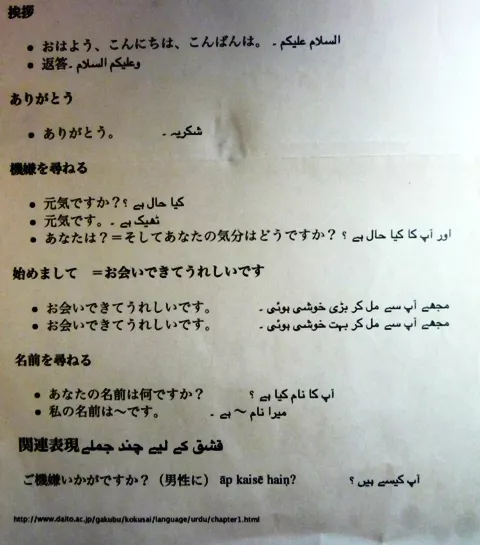 挨拶
● おはよう、こんにちは、こんばんは。 السلام علیکم ۔
● 返答 وعلیکم السلام ۔
ありがとう
● ありがとう。 شکریہ ۔
機嫌を尋ねる
● 元気ですか？ کیا حال ہے ؟
● 元気です。 ٹھیک ہے ۔
● あなたは？＝そしてあなたの気分はどうですか？ اور آپ کا کیا حال ہے ؟
始めまして ＝お会いできてうれしいです
● お会いできてうれしいです。 مجھے آپ سے مل کر بڑی خوشی ہوئی ۔
● お会いできてうれしいです。 مجھے آپ سے مل کر بہت خوشی ہوئی ۔
名前を尋ねる
● あなたの名前は何ですか？ آپ کا نام کیا ہے ؟
● 私の名前は～です。 میرا نام ～ ہے ۔
関連表現 قشق کے لیے چند جملے
ご機嫌いかがですか？（男性に） āp kaisē haiṇ? آپ کیسے ہیں ؟
http://www.daito.ac.jp/gakubu/kokusai/language/urdu/chapter1.html